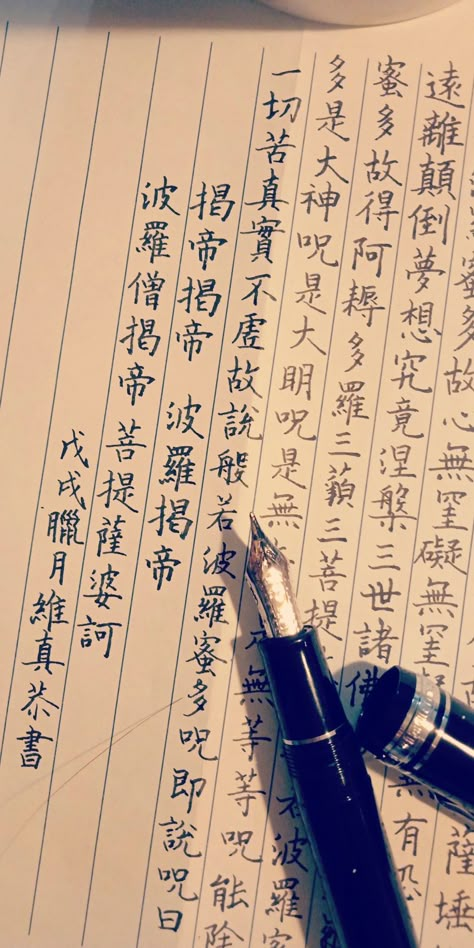 薩埵
蜜多故心無罣礙無罣 無有恐
遠離顛倒夢想究竟涅槃三世諸佛
蜜多故得阿耨多羅三藐三菩提 波羅
多是大神呪是大明呪是無 無等等呪能除
一切苦真實不虛故說般若波羅蜜多呪即說呪曰
揭帝揭帝 波羅揭帝
波羅僧揭帝菩提薩婆訶
戊戌臘月維真恭書